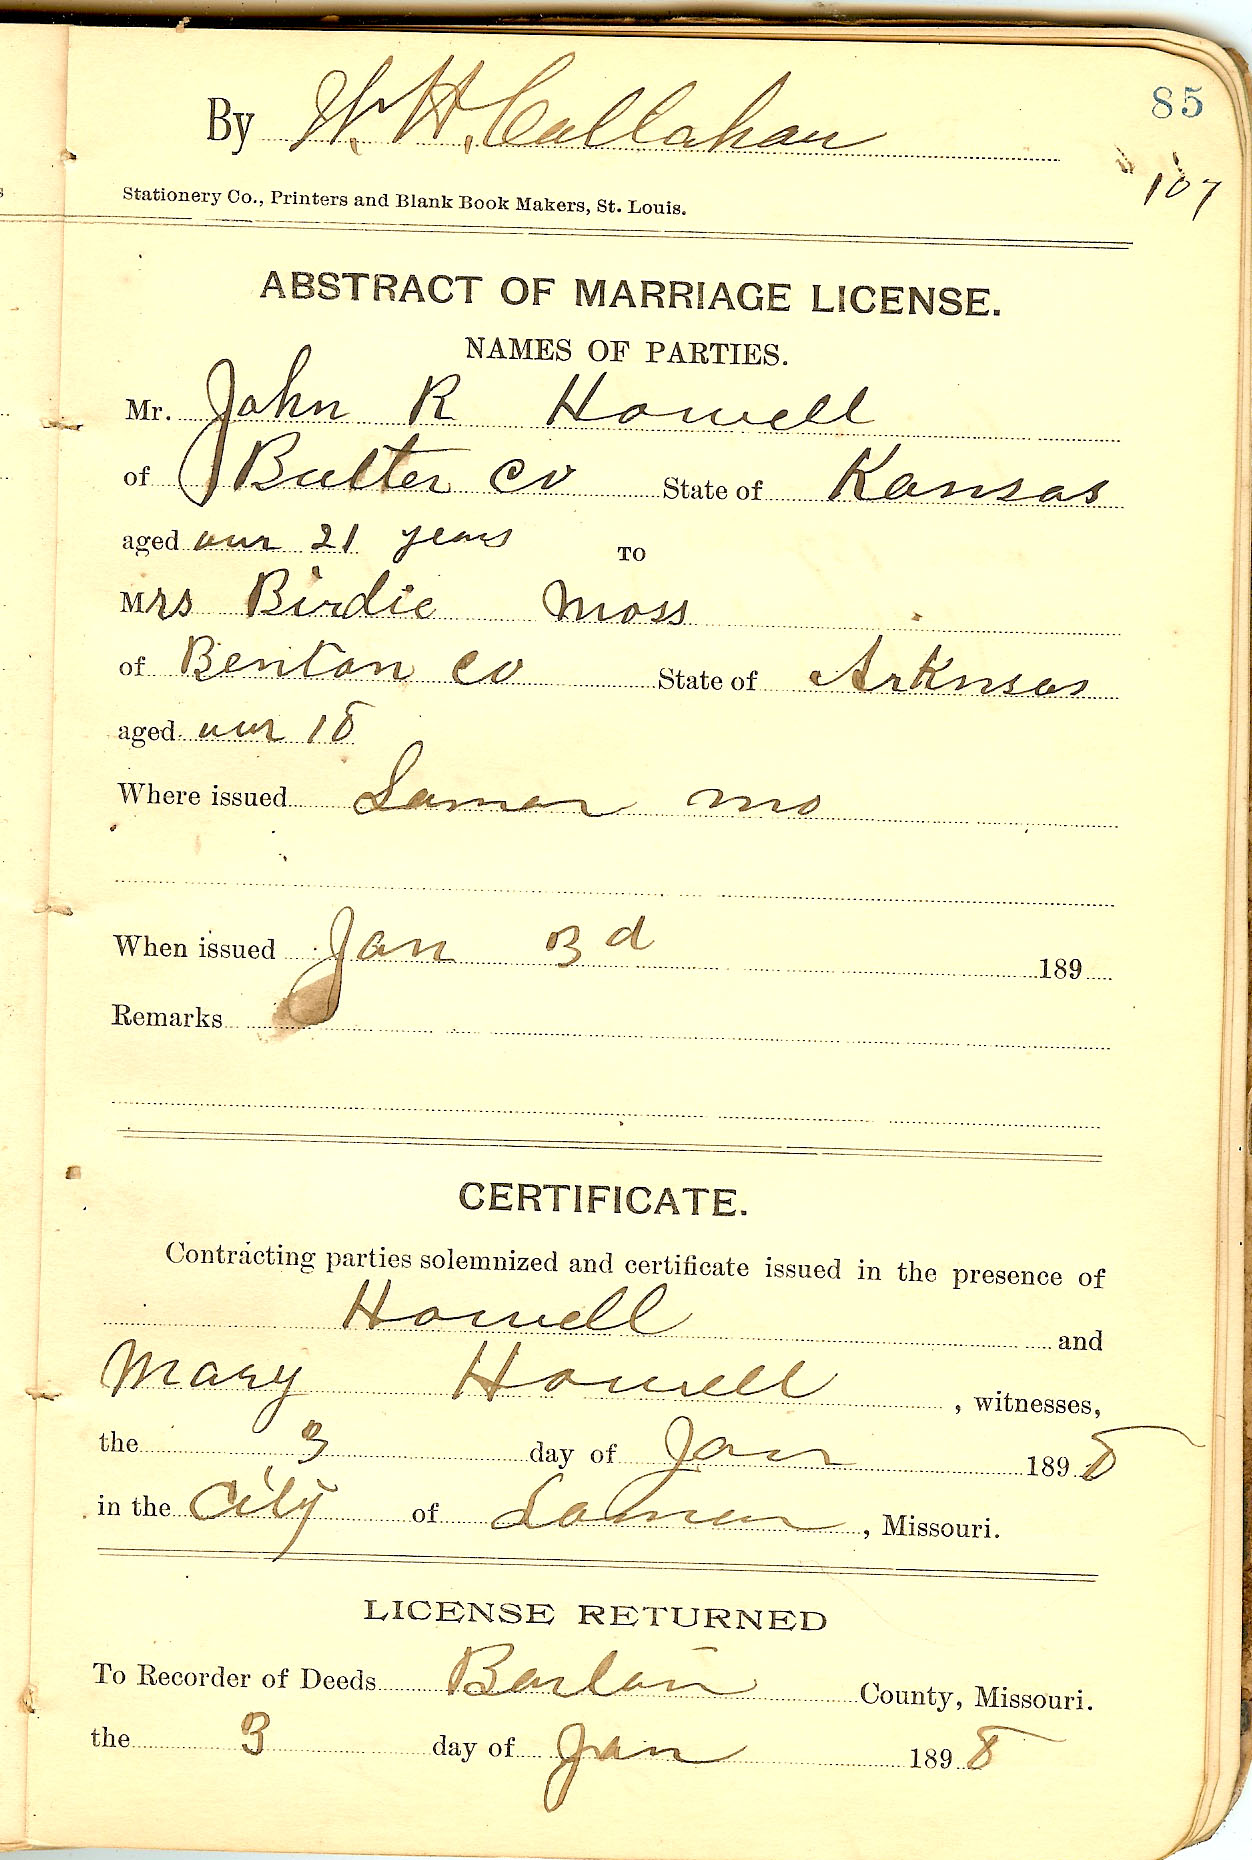 85
By W. H. Callahan
107
Stationery Co., Printers and Blank Book Makers, St. Louis.
ABSTRACT OF MARRIAGE LICENSE.
NAMES OF PARTIES.
Mr. John R Howell
of Butler Co State of Kansas
aged over 21 years TO
Mrs Birdie Moss
of Benton Co State of Arknsas
aged over 18
Where issued Lamar Mo
When issued Jan 3d 189
Remarks
CERTIFICATE.
Contracting parties solemnized and certificate issued in the presence of
Howell and
Mary Howell, witnesses,
the 3 day of Jan 1898
in the City of Lamar, Missouri.
LICENSE RETURNED
To Recorder of Deeds Barton County, Missouri.
the 3 day of Jan 1898